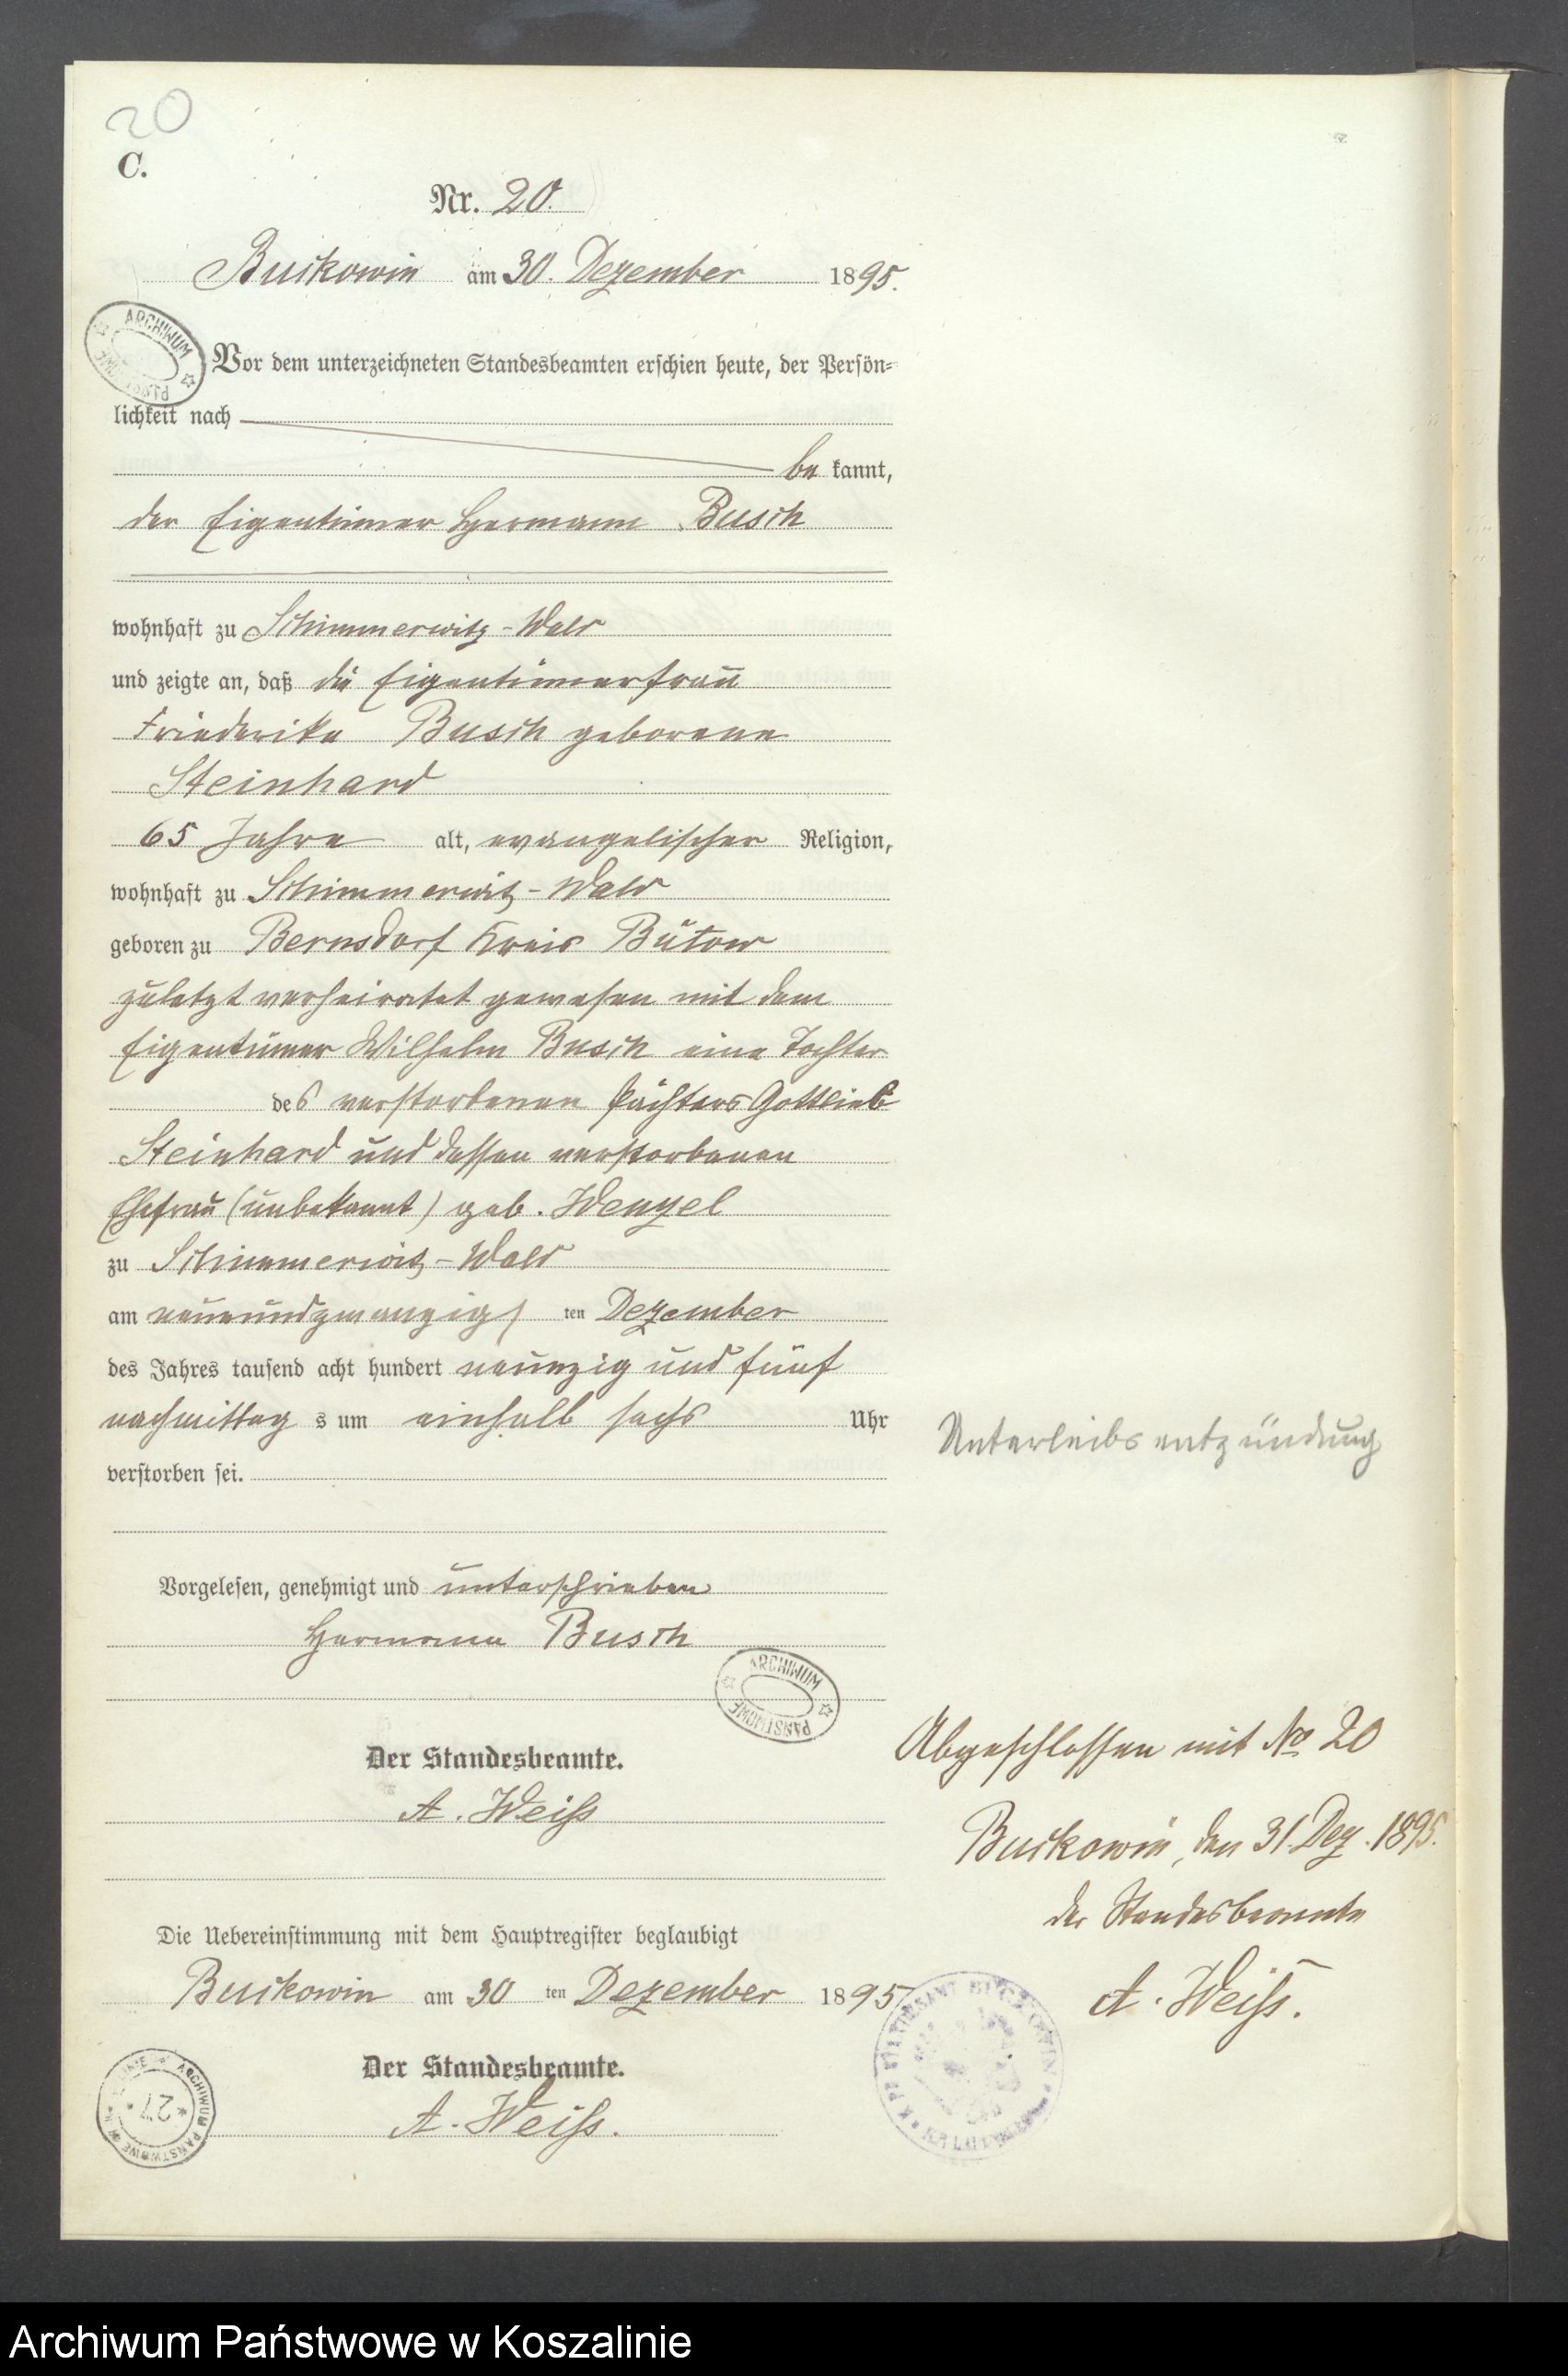 20
C.
Nr. 20.
Buckowin am 30. Dezember 1895.
ARCHIWUM PAŃSTWOWE
Vor dem unterzeichneten Standesbeamten erschien heute, der Persön=
lichkeit nach
be kannt,
der Eigentümer Hermann Busch
wohnhaft zu Schimmerwitz-Wald
und zeigte an, daß die Eigentümerfrau
Friederike Busch geborene
Steinhard
65 Jahre alt, evangelischer Religion,
wohnhaft zu Schimmerwitz-Wald
geboren zu Bernsdorf Kreis Bütow
zuletzt verheiratet gewesen mit dem
Eigentümer Wilhelm Busch eine Tochter
des verstorbenen Pächters Gottlieb
Steinhard und dessen verstorbenen
Ehefrau (unbekannt) geb. Wenzel
zu Schimmerwitz-Wald
am neunundzwanzigs ten Dezember
des Jahres tausend acht hundert neunzig und fünf
nachmittag s um einhalb sechs Uhr
verstorben sei.
Unterleibsentzündung
Vorgelesen, genehmigt und unterschrieben
Hermann Busch
ARCHIWUM PAŃSTWOWE
Der Standesbeamte.
A. Weiß
Abgeschlossen mit No 20
Buckowin, den 31. Dez. 1895.
der Standesbeamte
A. Weiß.
Die Uebereinstimmung mit dem Hauptregister beglaubigt
Buckowin am 30 ten Dezember 1895
Der Standesbeamte.
A. Weiß.
ARCHIWUM PAŃSTWOWE
27
Archiwum Państwowe w Koszalinie